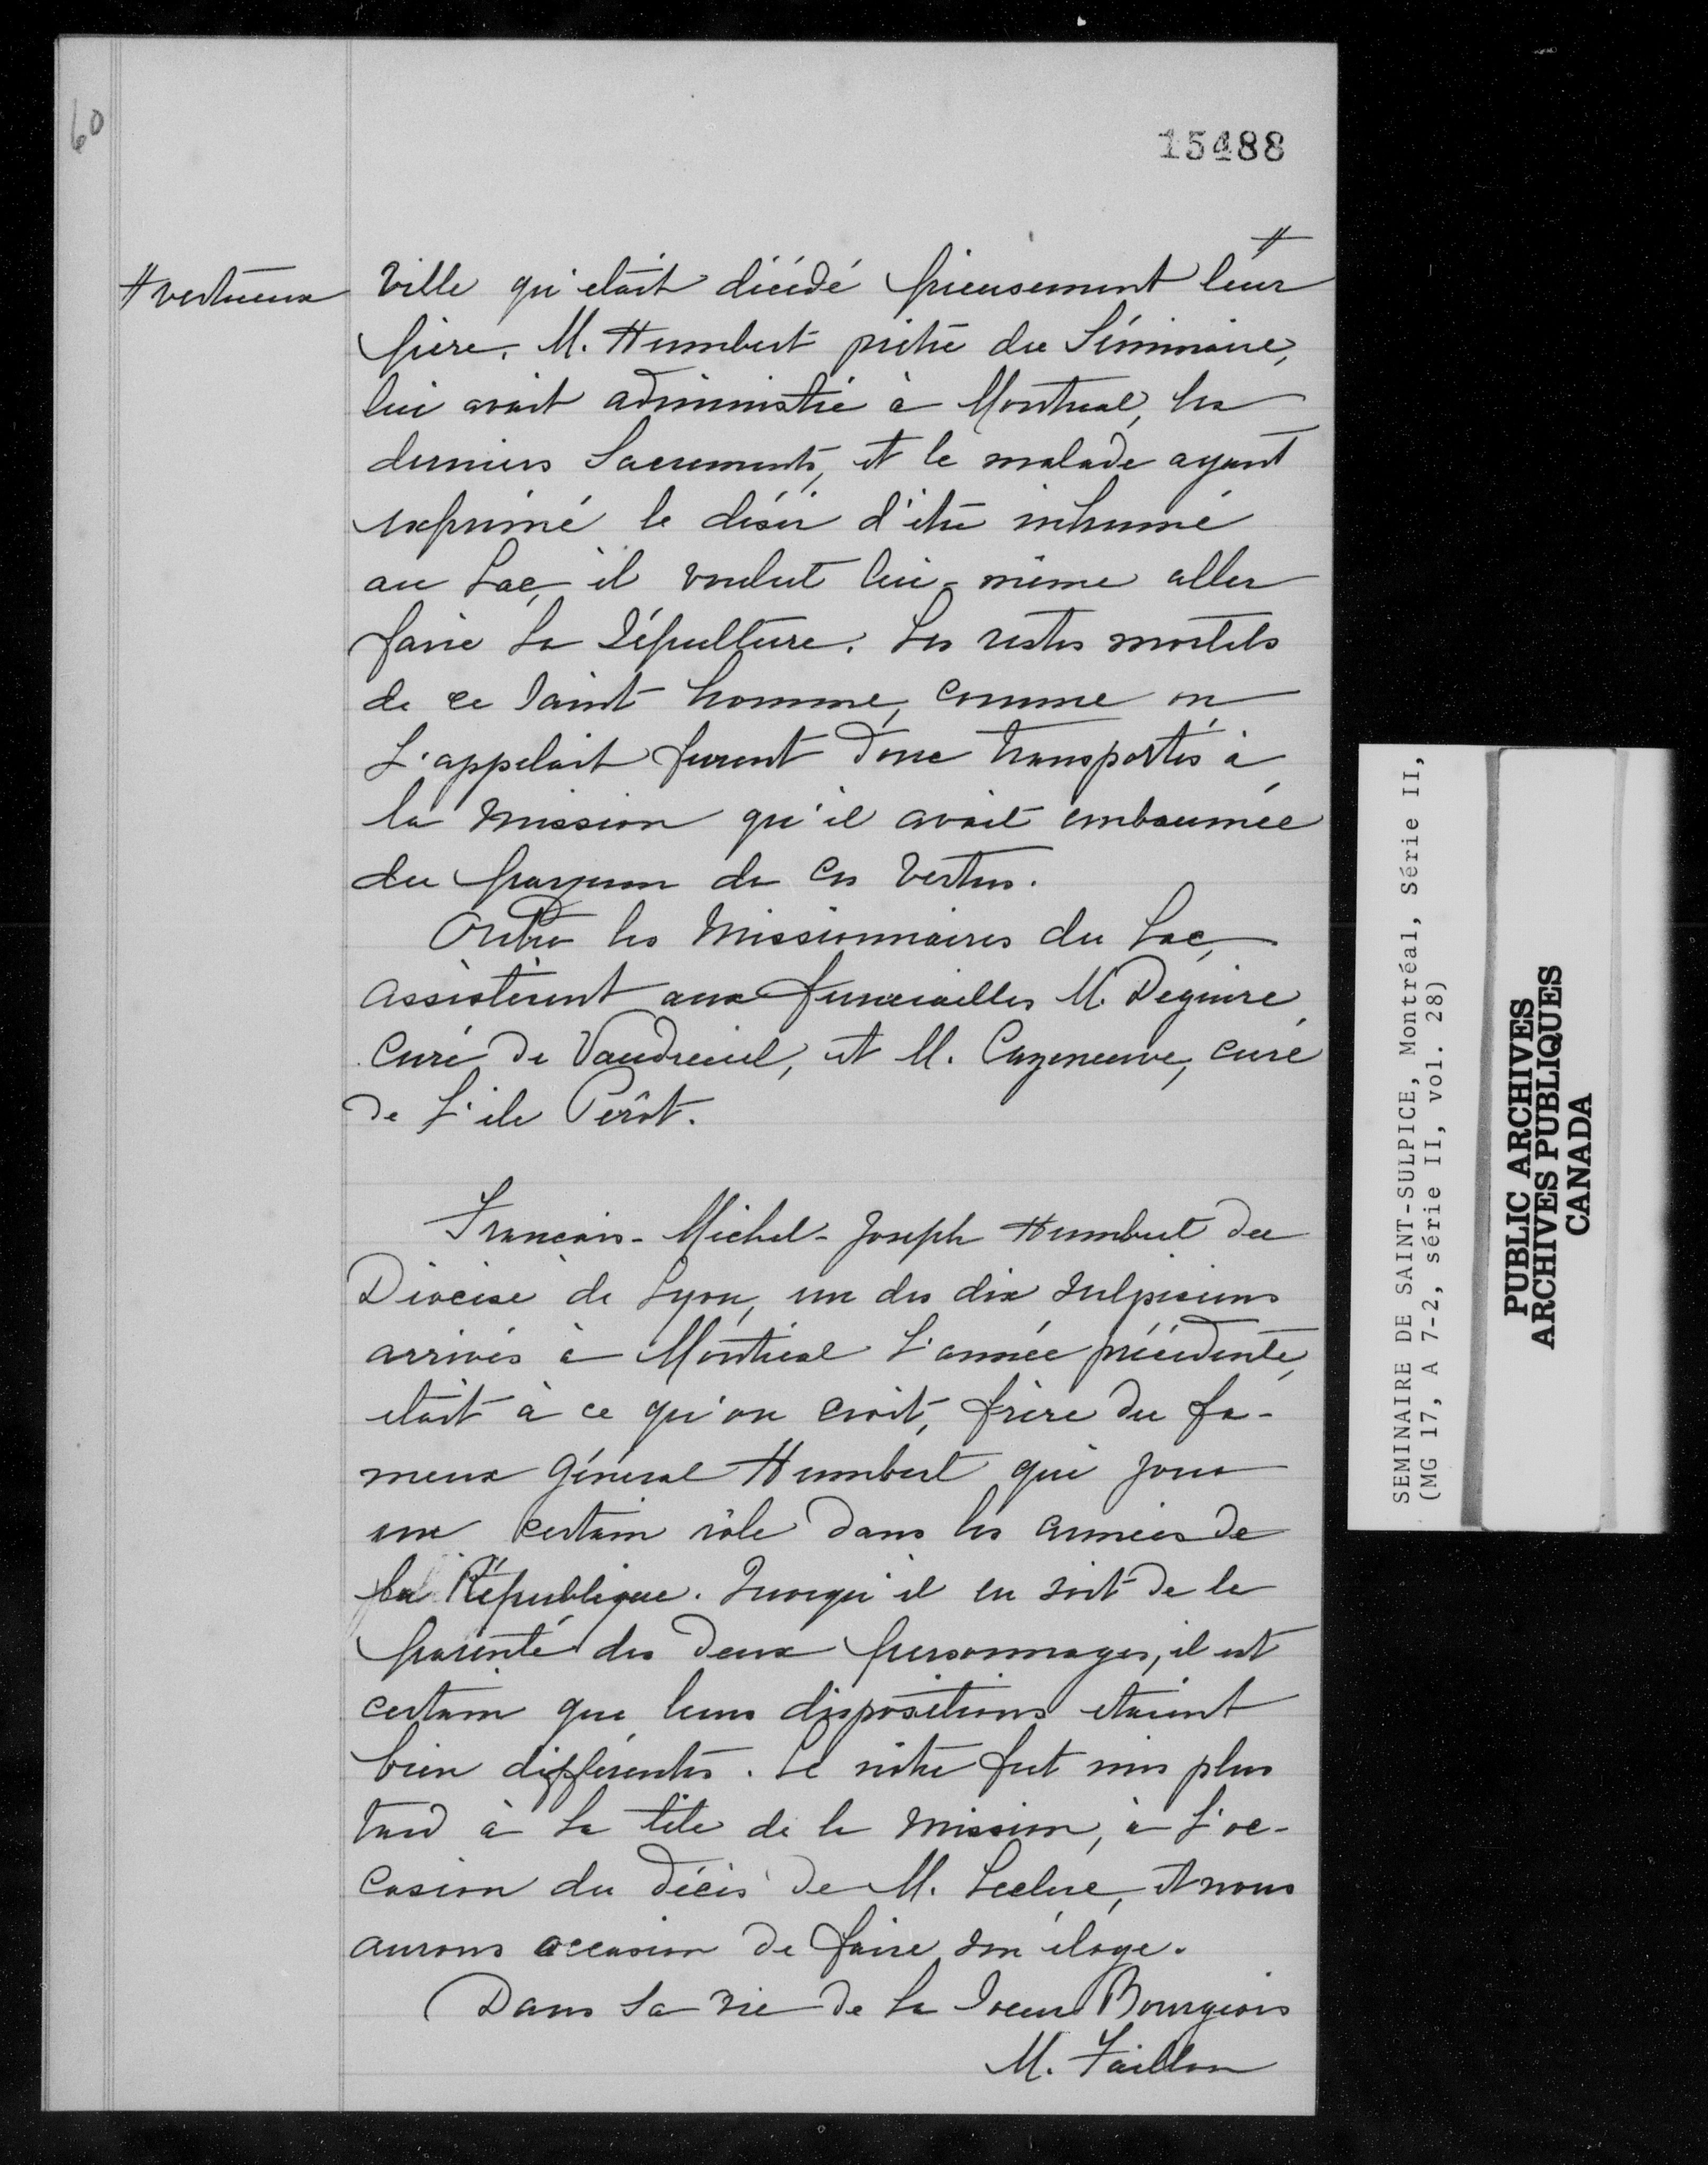 60
15488
# vertueux
ville qu'était décédé pieusement leur #
frère. M. Humbert prêtre du Séminaire,
lui avait administré à Montreal, les
derniers Sacrements, et le malade ayant
exprimé le désir d'être inhumé
au Lac, il voulut lui-même aller
faire la Sépulture. Les restes mortels
de ce Saint homme, comme on
l'appelait furent donc transportés à
la mission qu'il avait embaumée
du parfum de ces vertus.
Outre les missionnaires du Lac,
assistèrent aux funerailles M. Deguire,
Curé de Vaudreuil, et M. Cazeneuve, curé
de l'ile Perôt.
Francois-Michel-Joseph Humbert du
Diocèse de Lyon, un des dix sulpiciens
arrivés à Montréal l'année précédente,
était à ce qu'on croit, frère du fa-
meux Général Humbert qui joua
un certain rôle dans les armées de
la République. Quoiqu'il en soit de la
parenté des deux personnages, il est
certain que leurs dispositions étaient
bien différentes. Le nôtre fut mis plus
tard à la tête de la mission, à l'oc-
casion du décès de M. Leclerc, et nous
aurons occasion de faire son éloge.
Dans la vie de la Soeur Bourgeois
M. Faillon
SEMINAIRE DE SAINT-SULPICE, Montréal, Série II,
(MG 17, A 7-2, série II, vol. 28)
PUBLIC ARCHIVES
ARCHIVES PUBLIQUES
CANADA